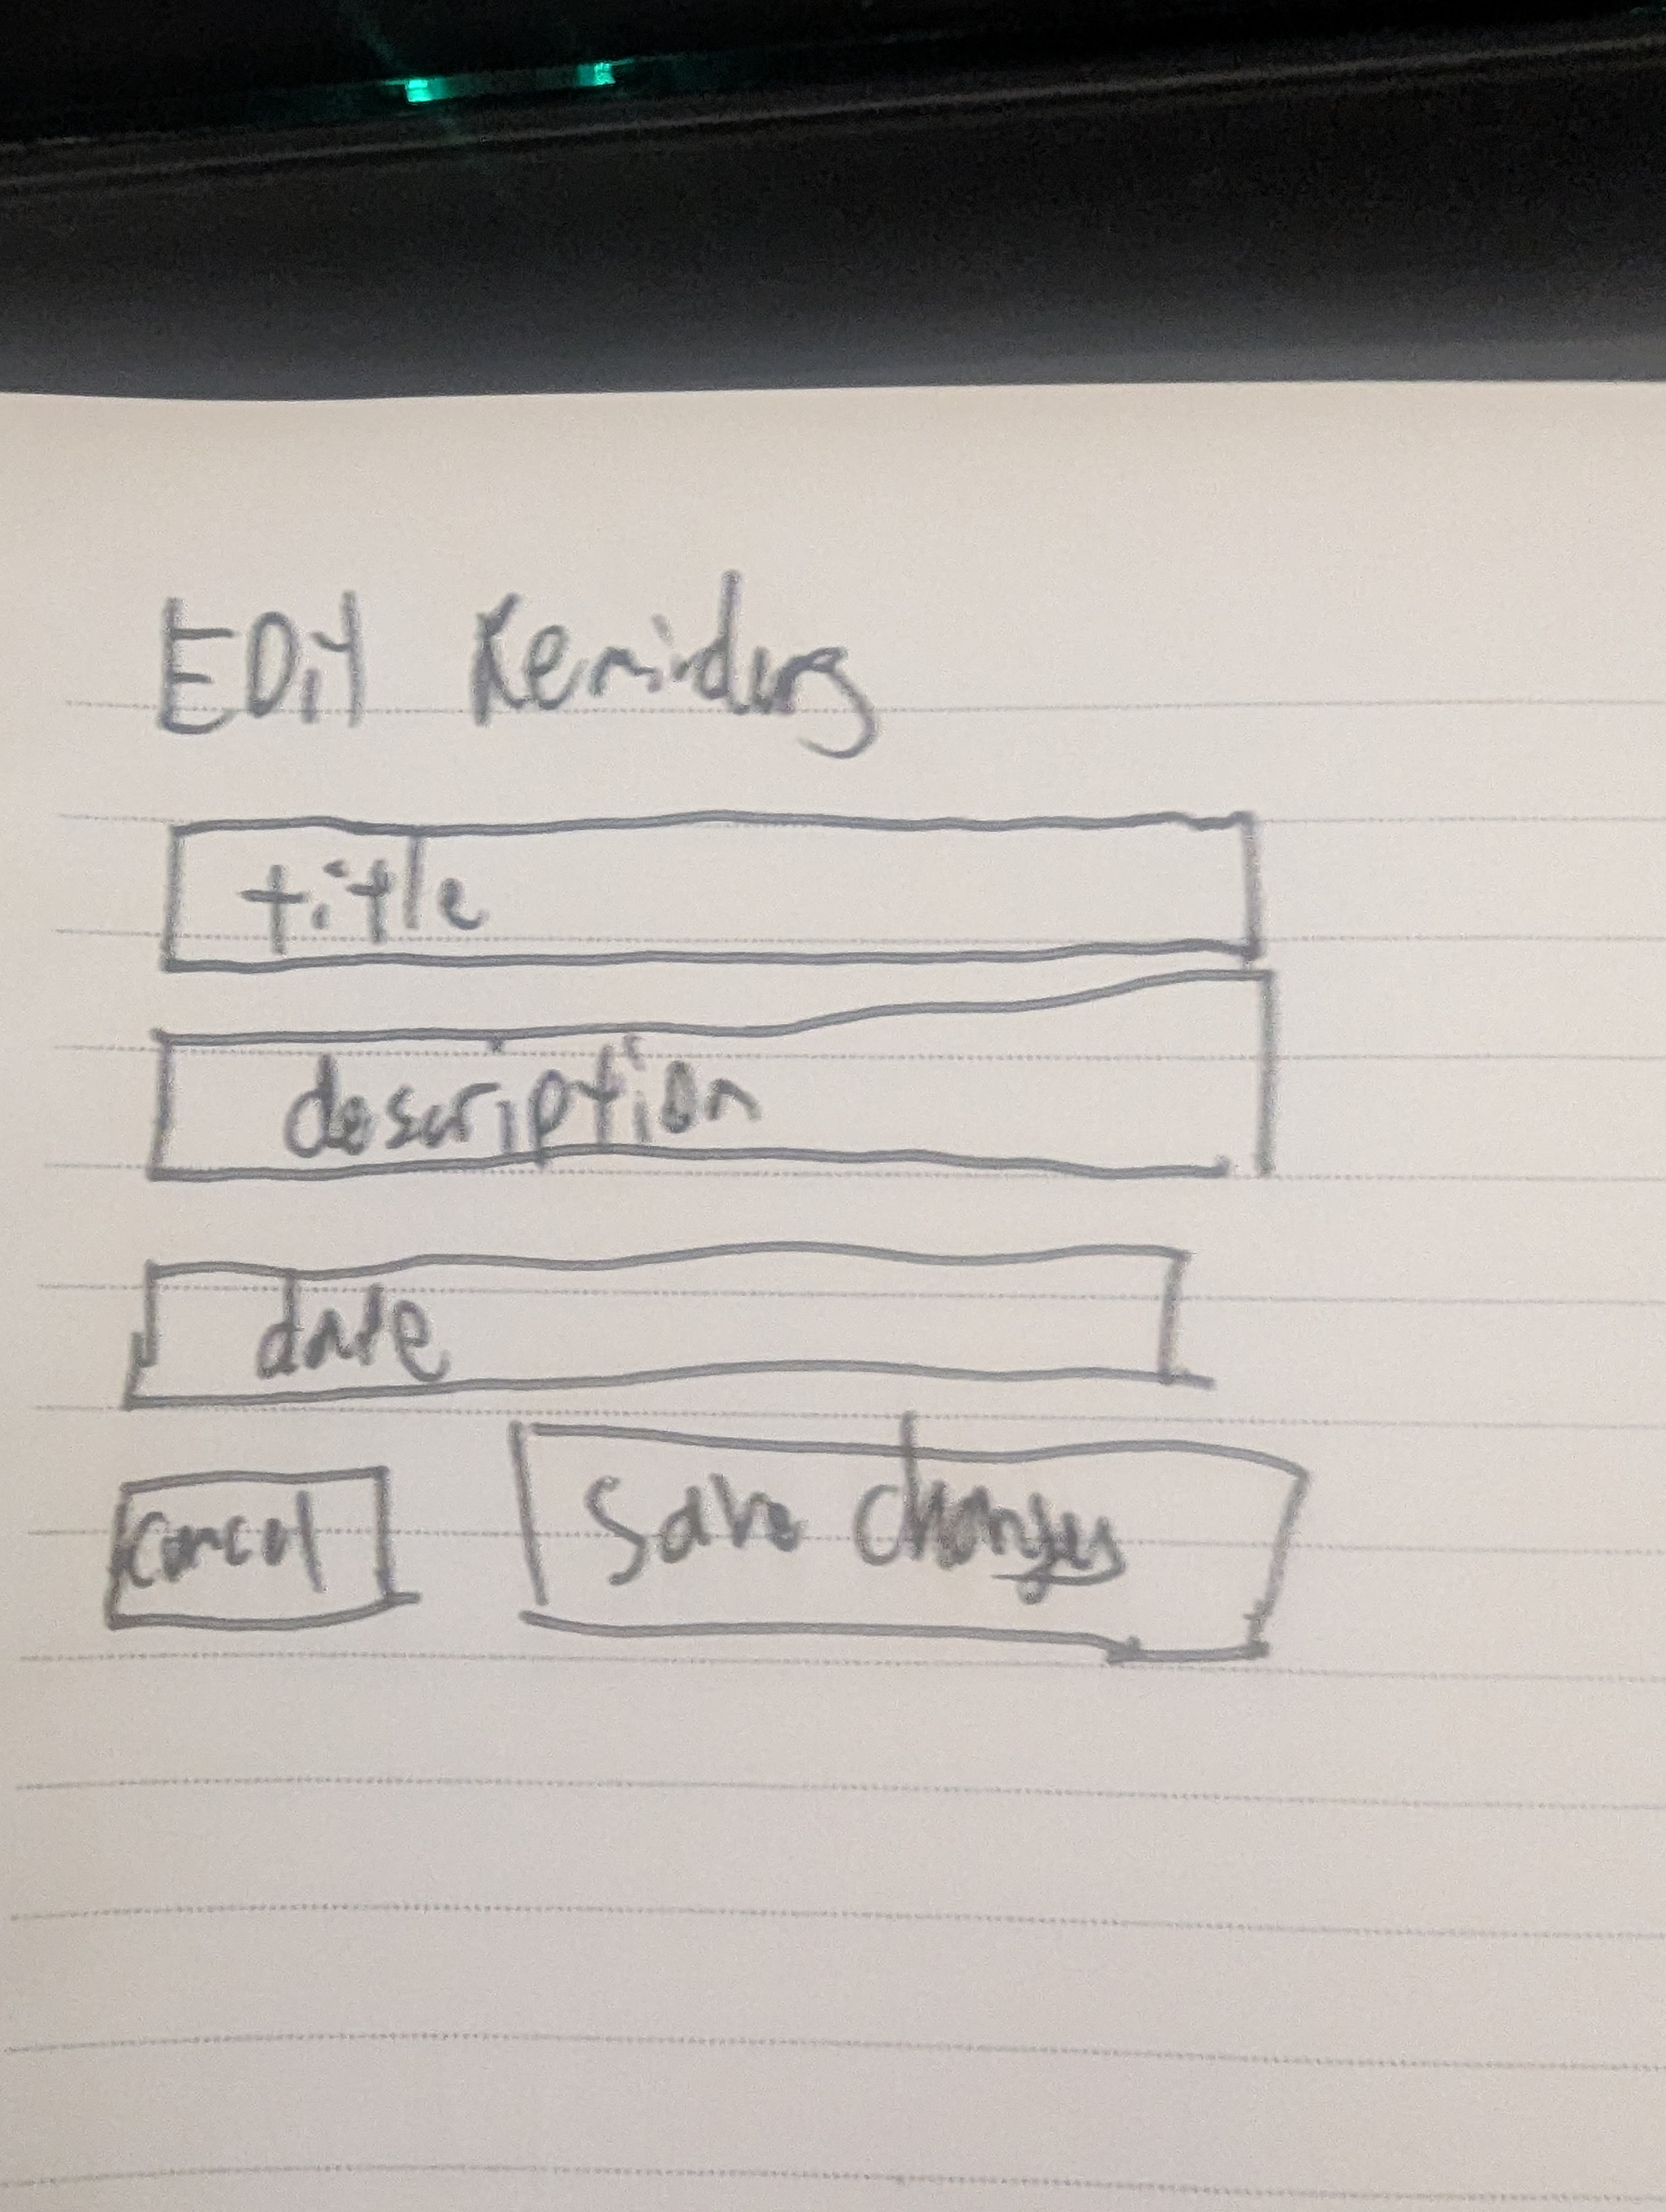 EDit Reminders
title
description
date
cancel
Save changes